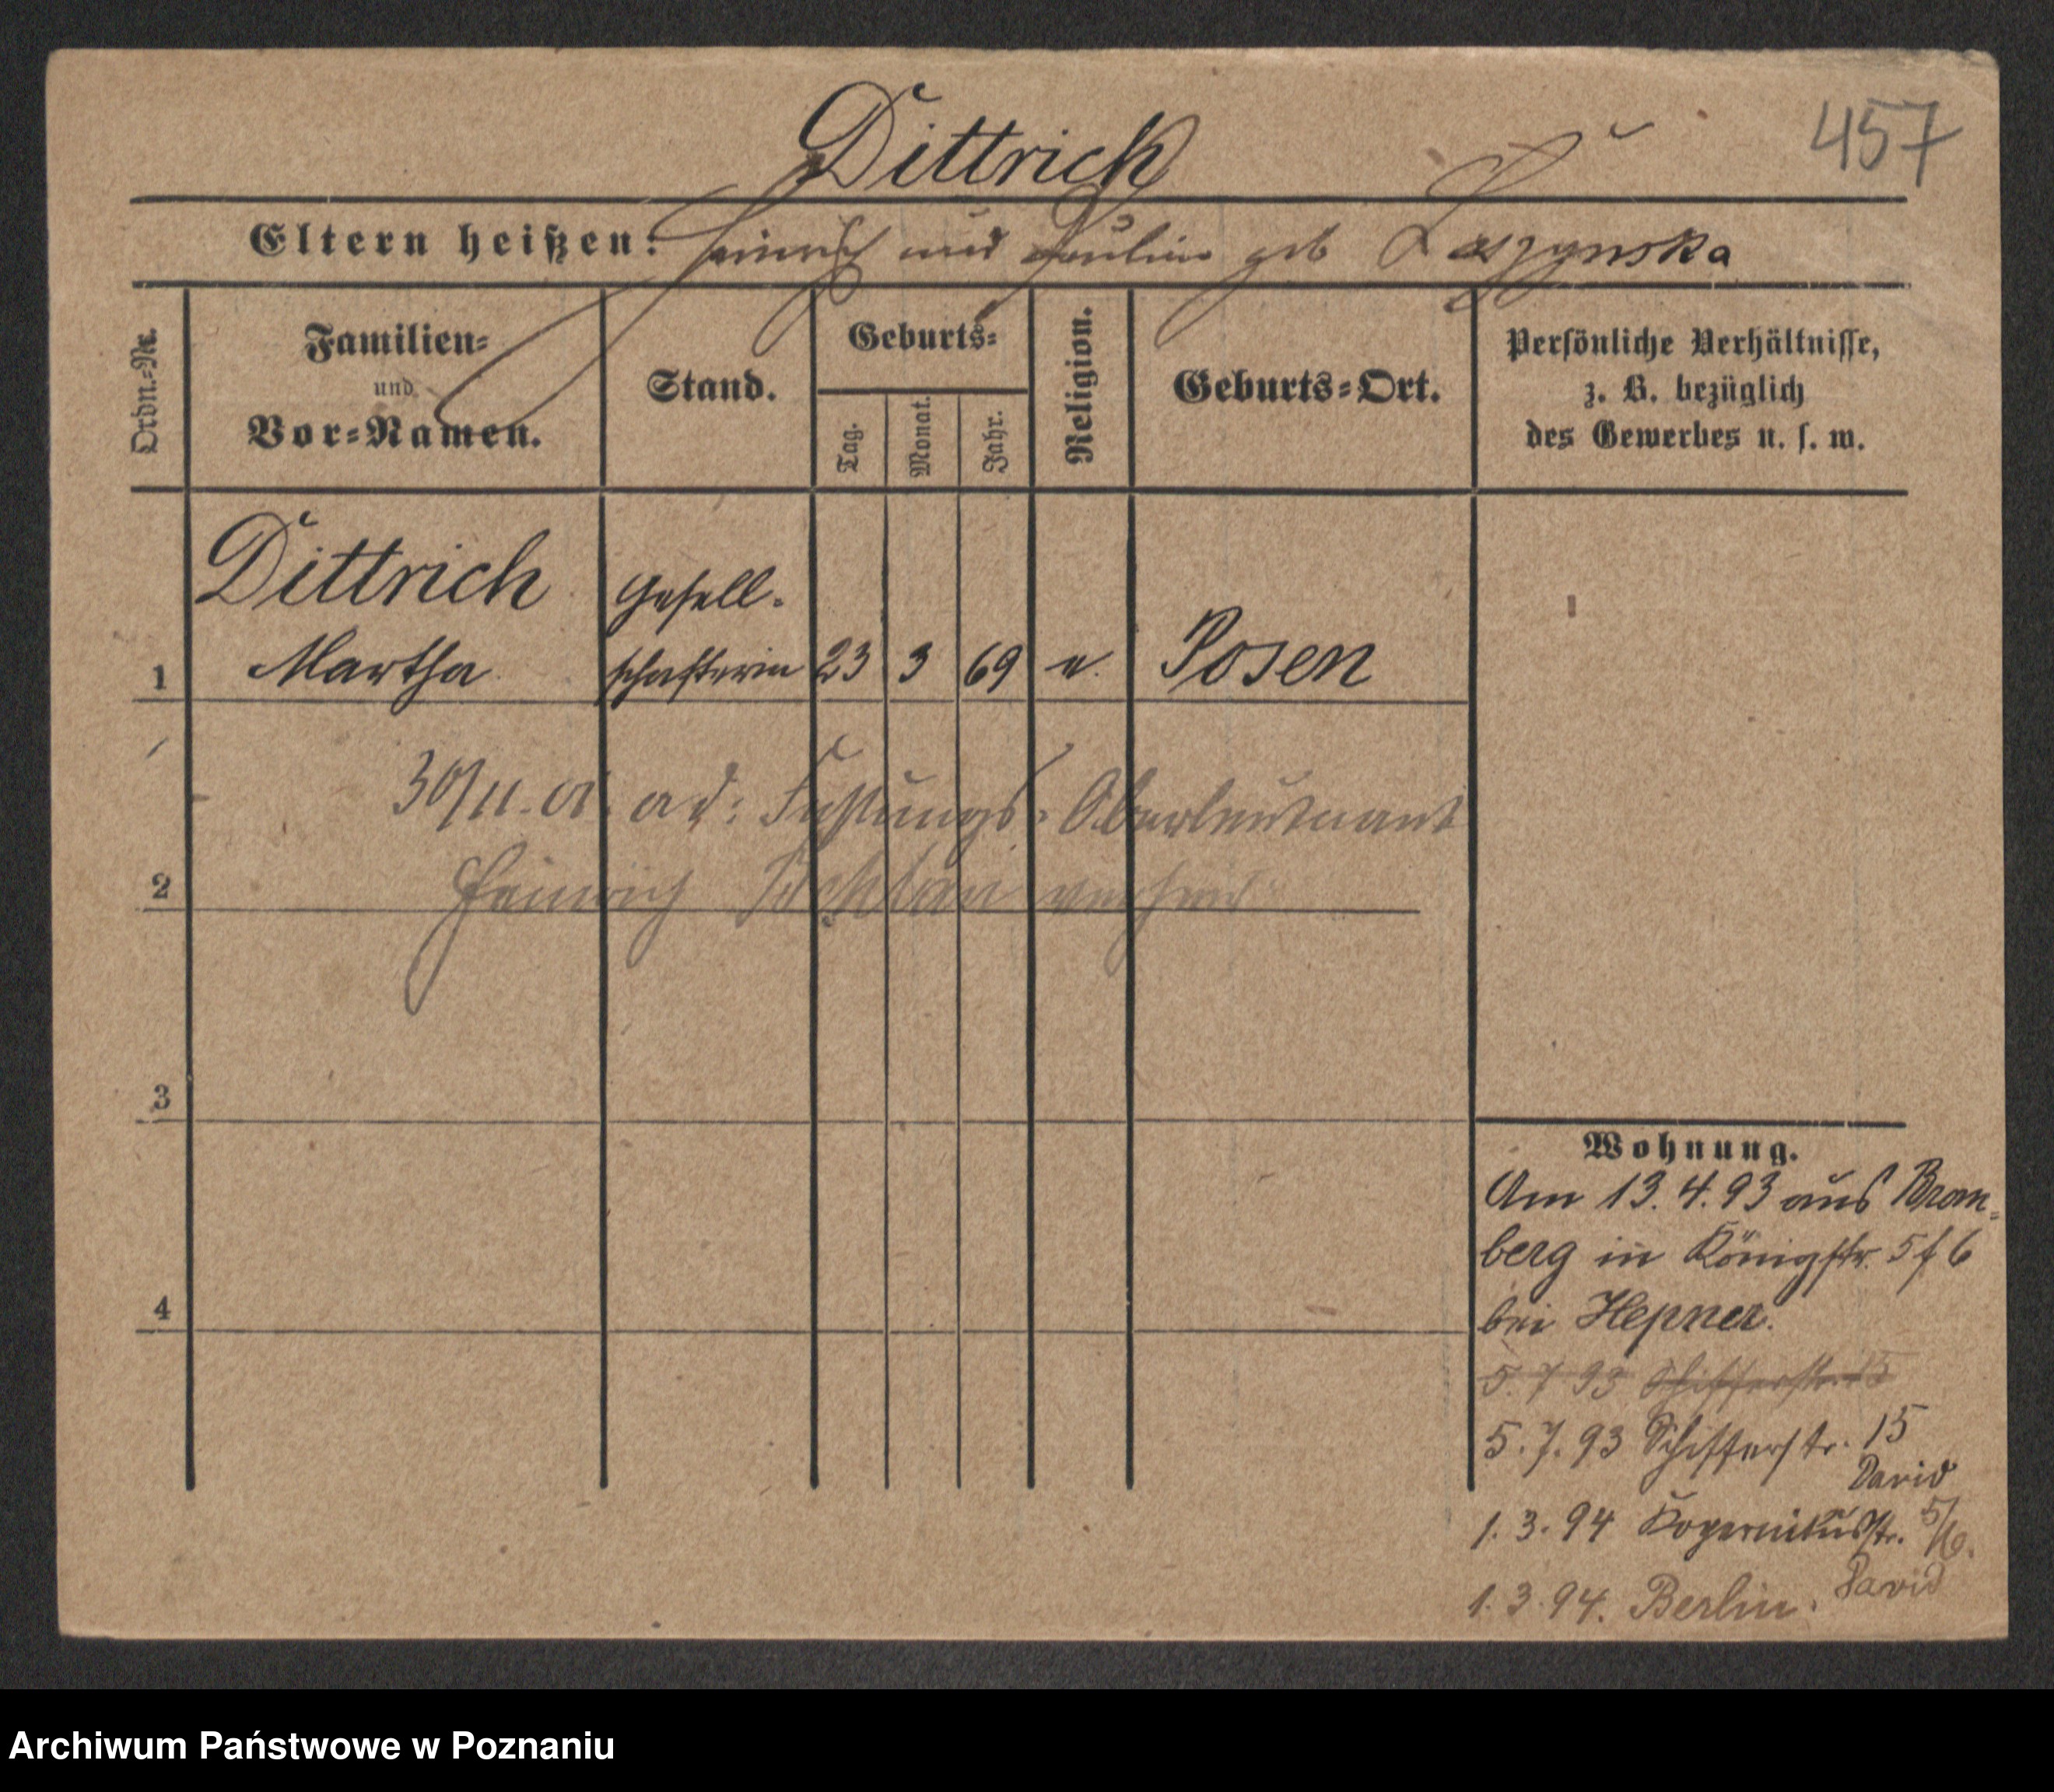 457
Dittrich
Eltern heißen: Heinrich und Pauline geb Laszynska
Ordn.=Nr.
Familien=
und
Vor=Namen.
Stand.
Geburts=
Tag.
Monat.
Jahr.
Religion.
Geburts=Ort.
Persönliche Verhältnisse,
z. B. bezüglich
des Gewerbes u. s. w.
Dittrich Gesell-
1 Martha schafterin 23 3 69 e. Posen
30/11. 01. ad: Festungs-Oberleutnant
2 Heinrich
3
4
Wohnung.
Am 13.4.93 aus Brom=
berg in Königstr. 5/6
bei Hepner.
5.7.93 Schifferstr. 15
5.7.93 Schifferstr. 15
David
1.3.94 Kopernikusstr. 5/6.
David
1.3.94. Berlin.
Archiwum Państwowe w Poznaniu